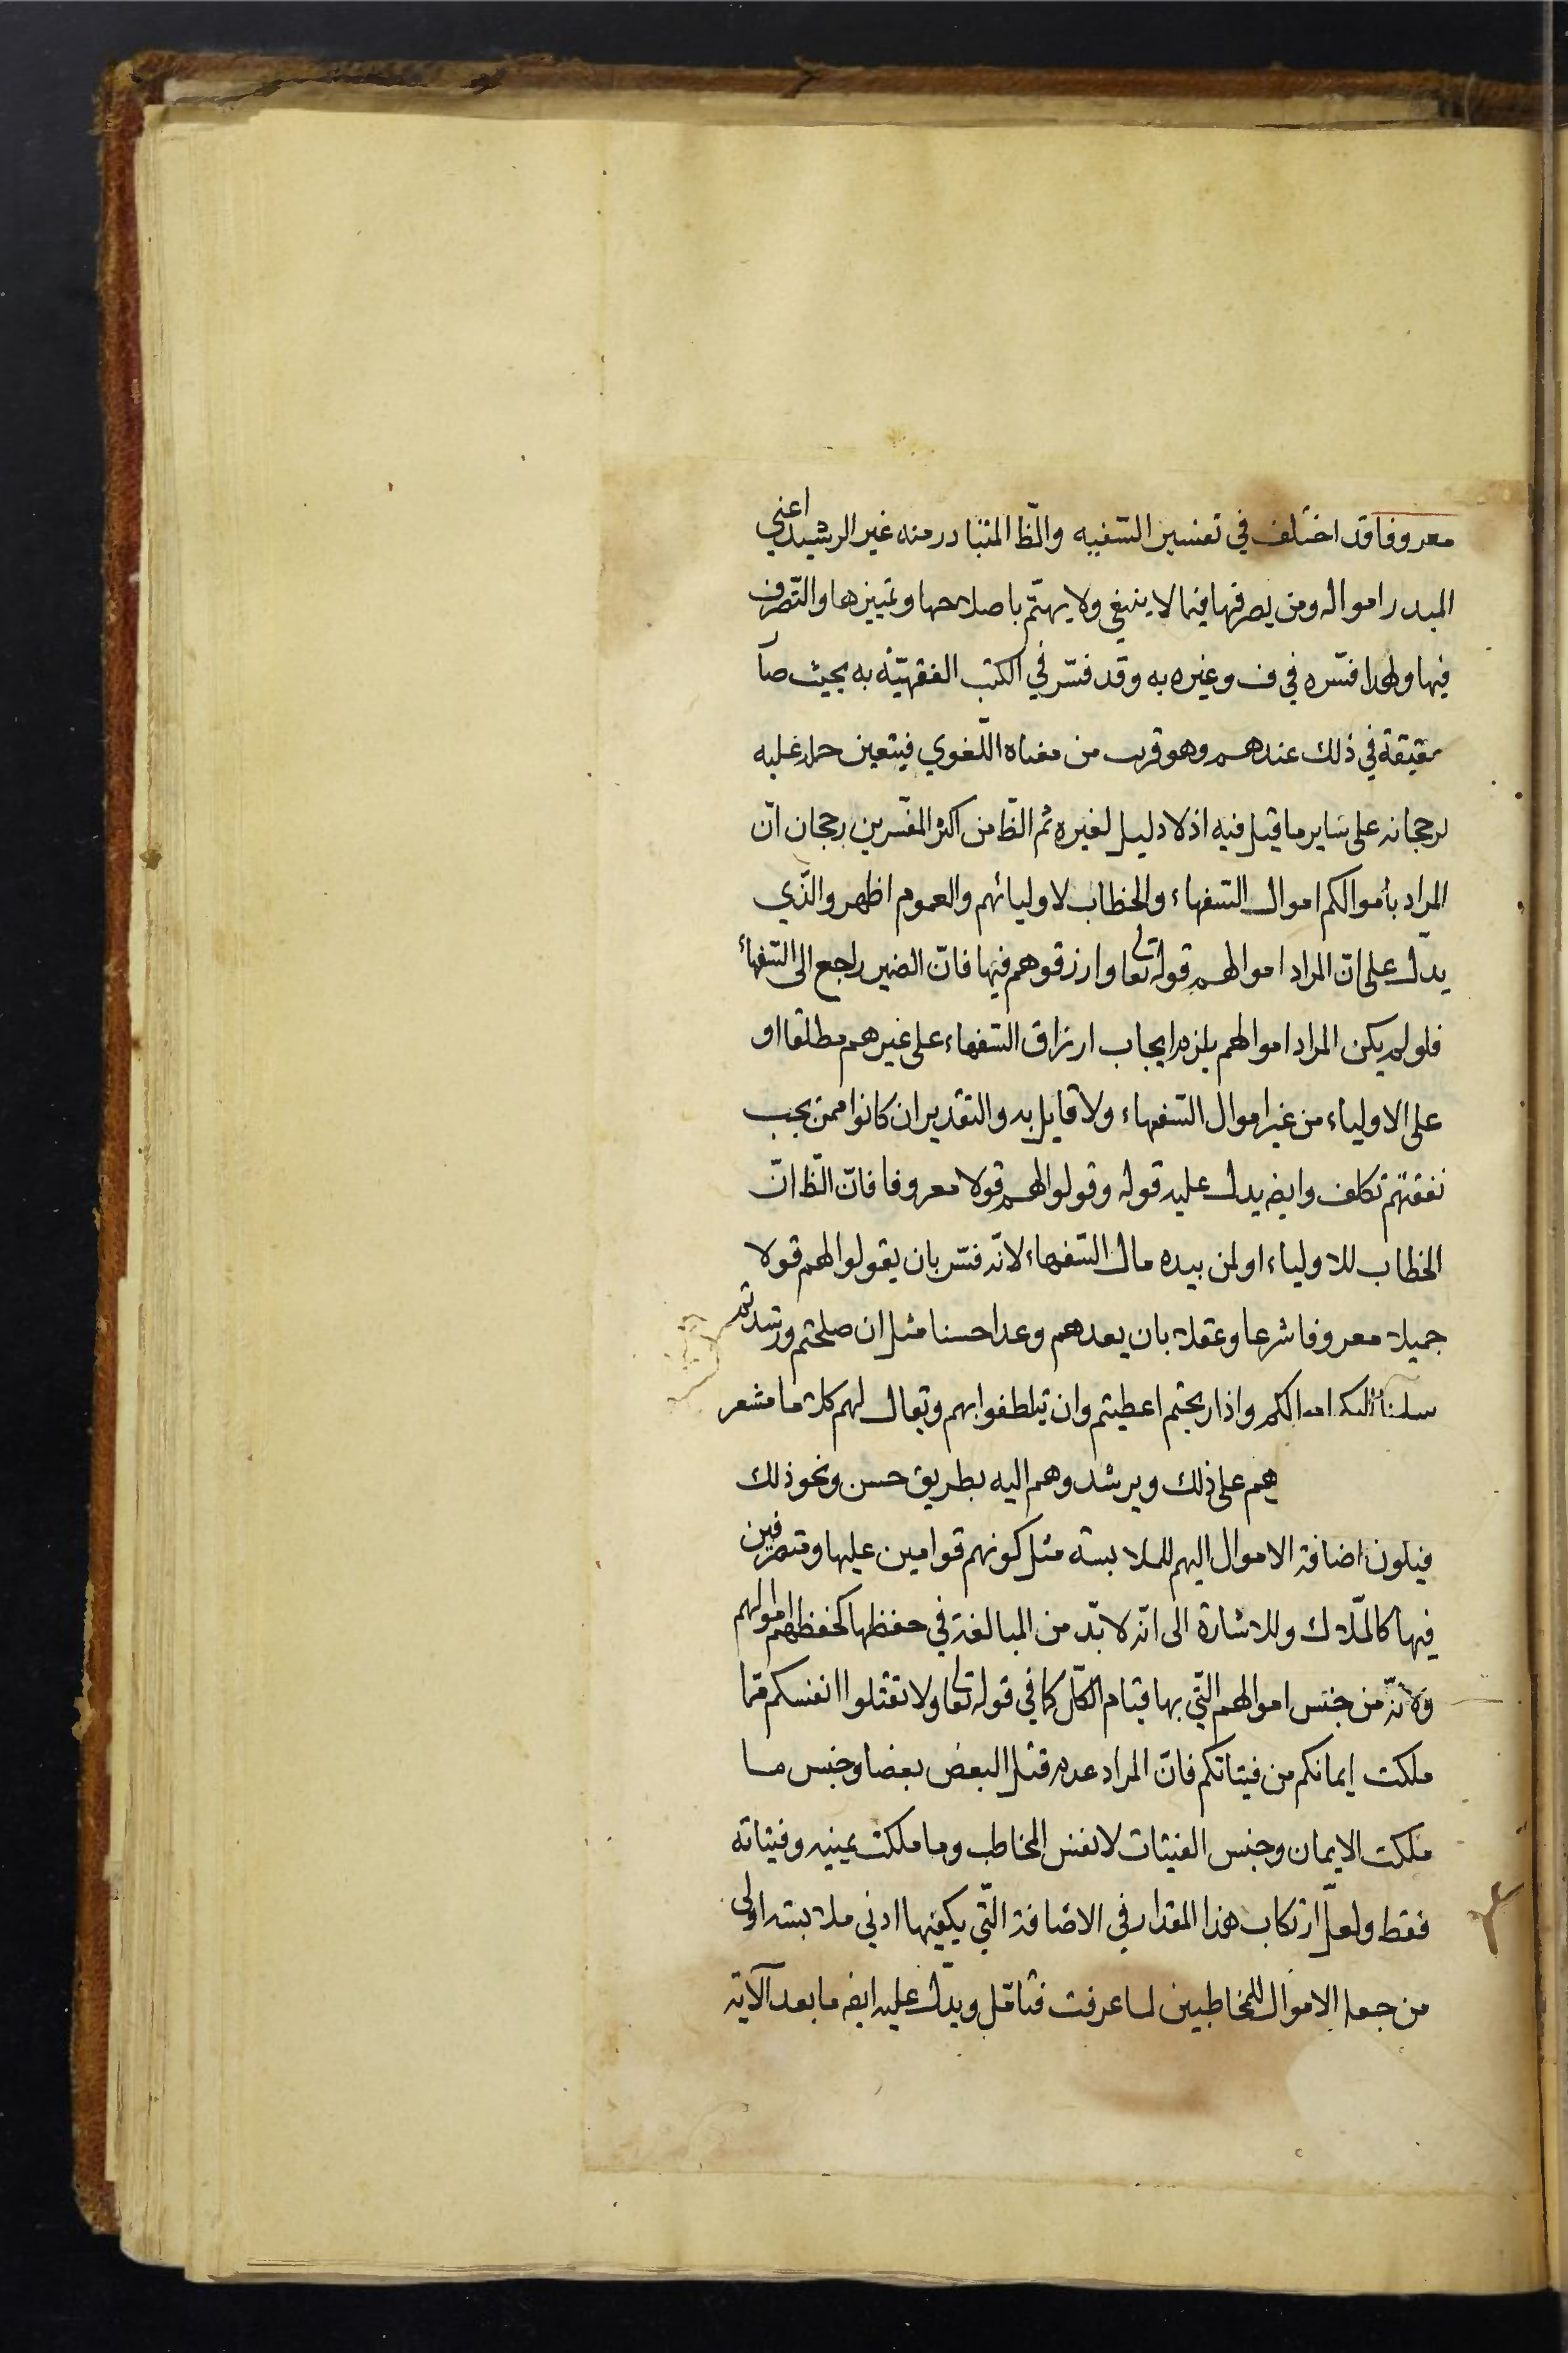 معروفا قد اختلف في تفسير السّفيه والظّ المتبادر منه غير الرشيد اعني
المبذر امواله ومن يصرفها فيما لا ينبغي ولا يهتّم باصلاحها وتمييزها والتّصرف
فيها ولهذا فسّره في ف وغيره به وقد فسّر في الكتب الفقهيّة به بحيث صا
حقيقة في ذلك عندهم وهو قريب من معناه اللّغوي فيتعين حمله عليه
لرجحانه على ساير ما قيل فيه اذ لا دليل لغيره ثم الظّ من اكثر المفسّرين رجحان انّ
المراد بأموالكم اموال السّفهاء والخطاب لاوليائهم والعموم اظهر والّذي
يدّل على انّ المراد اموالهم قوله تعا وارزقوهم فيها فانّ الضمير راجع الى السّفهاء
فلو لم يكن المراد اموالهم يلزم ايجاب ارزاق السّفهاء على غيرهم مطلقا او
على الاولياء من غير اموال السّفهاء ولا قايل به والتقدير ان كانوا ممن يجب
نفقتهم تكلف وايض يدل عليه قوله وقولوا لهم قولا معروفا فانّ الظّ انّ
الخطاب للاولياء او لمن بيده مال السّفهاء لانّه فسّر بان يقولوا لهم قولا
جميلا معروفا شرعا وعقلا بان يعدهم وعدا حسنا مثل ان صلحتم ورشدتم
سلمنا اليكم اموالكم واذا ربحتم اعطيتم وان تيلطفوا بهم ويقال لهم كلاما مشعر
هم على ذلك ويرشدوهم اليه بطريق حسن ونحو ذلك
فيكون اضافة الاموال اليهم للملابسة مثل كونهم قوامين عليها ومتصرفين
فيها كالملّاك وللاشارة الى انّه لا بدّ من المبالغة في حفظها كحفظهم اموالهم
ولانّه من جنس اموالهم الّتي بها قيام الكلّ كما في قوله تعا ولا تقتلوا انفسكم مما
ملكت ايمانكم من فيتاتكم فانّ المراد عدم قتل البعض بعضا وجنس ما
ملكت الايمان وجنس الفتيات لا نفس المخاطب وما ملكت يمينه وفتياته
فقط ولعلّ ارتكاب هذا المقدار في الاضافة الّتي يكفيها ادنى ملابسة اولى
من جعل الاموال للمخاطبين لما عرفت فتامّل ويدّل عليه ايض ما بعد الآية